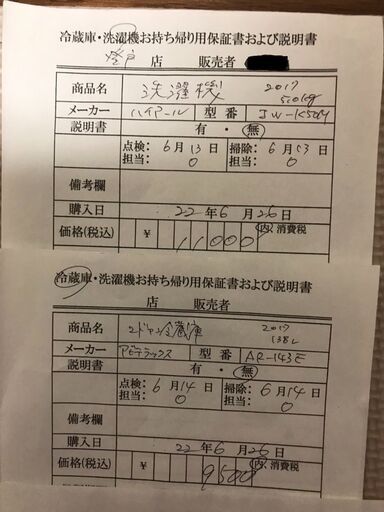 冷蔵庫・洗濯機お持ち帰り用保証書および説明書
登戸 店 販売者
商品名 洗濯機 2017 5.0kg
メーカー ハイアール 型番 JW-K50M
説明書 有・無
点検: 6月13日 掃除: 6月13日
担当: 0 担当: 0
備考欄
購入日 22年6月26日
価格(税込) ¥ 11000 内、消費税
冷蔵庫・洗濯機お持ち帰り用保証書および説明書
店 販売者
商品名 2ドア冷蔵庫 2017 138L
メーカー アビテラックス 型番 AR-143E
説明書 有・無
点検: 6月14日 掃除: 6月14日
担当: 0 担当: 0
備考欄
購入日 22年6月26日
価格(税込) ¥ 9500 内、消費税